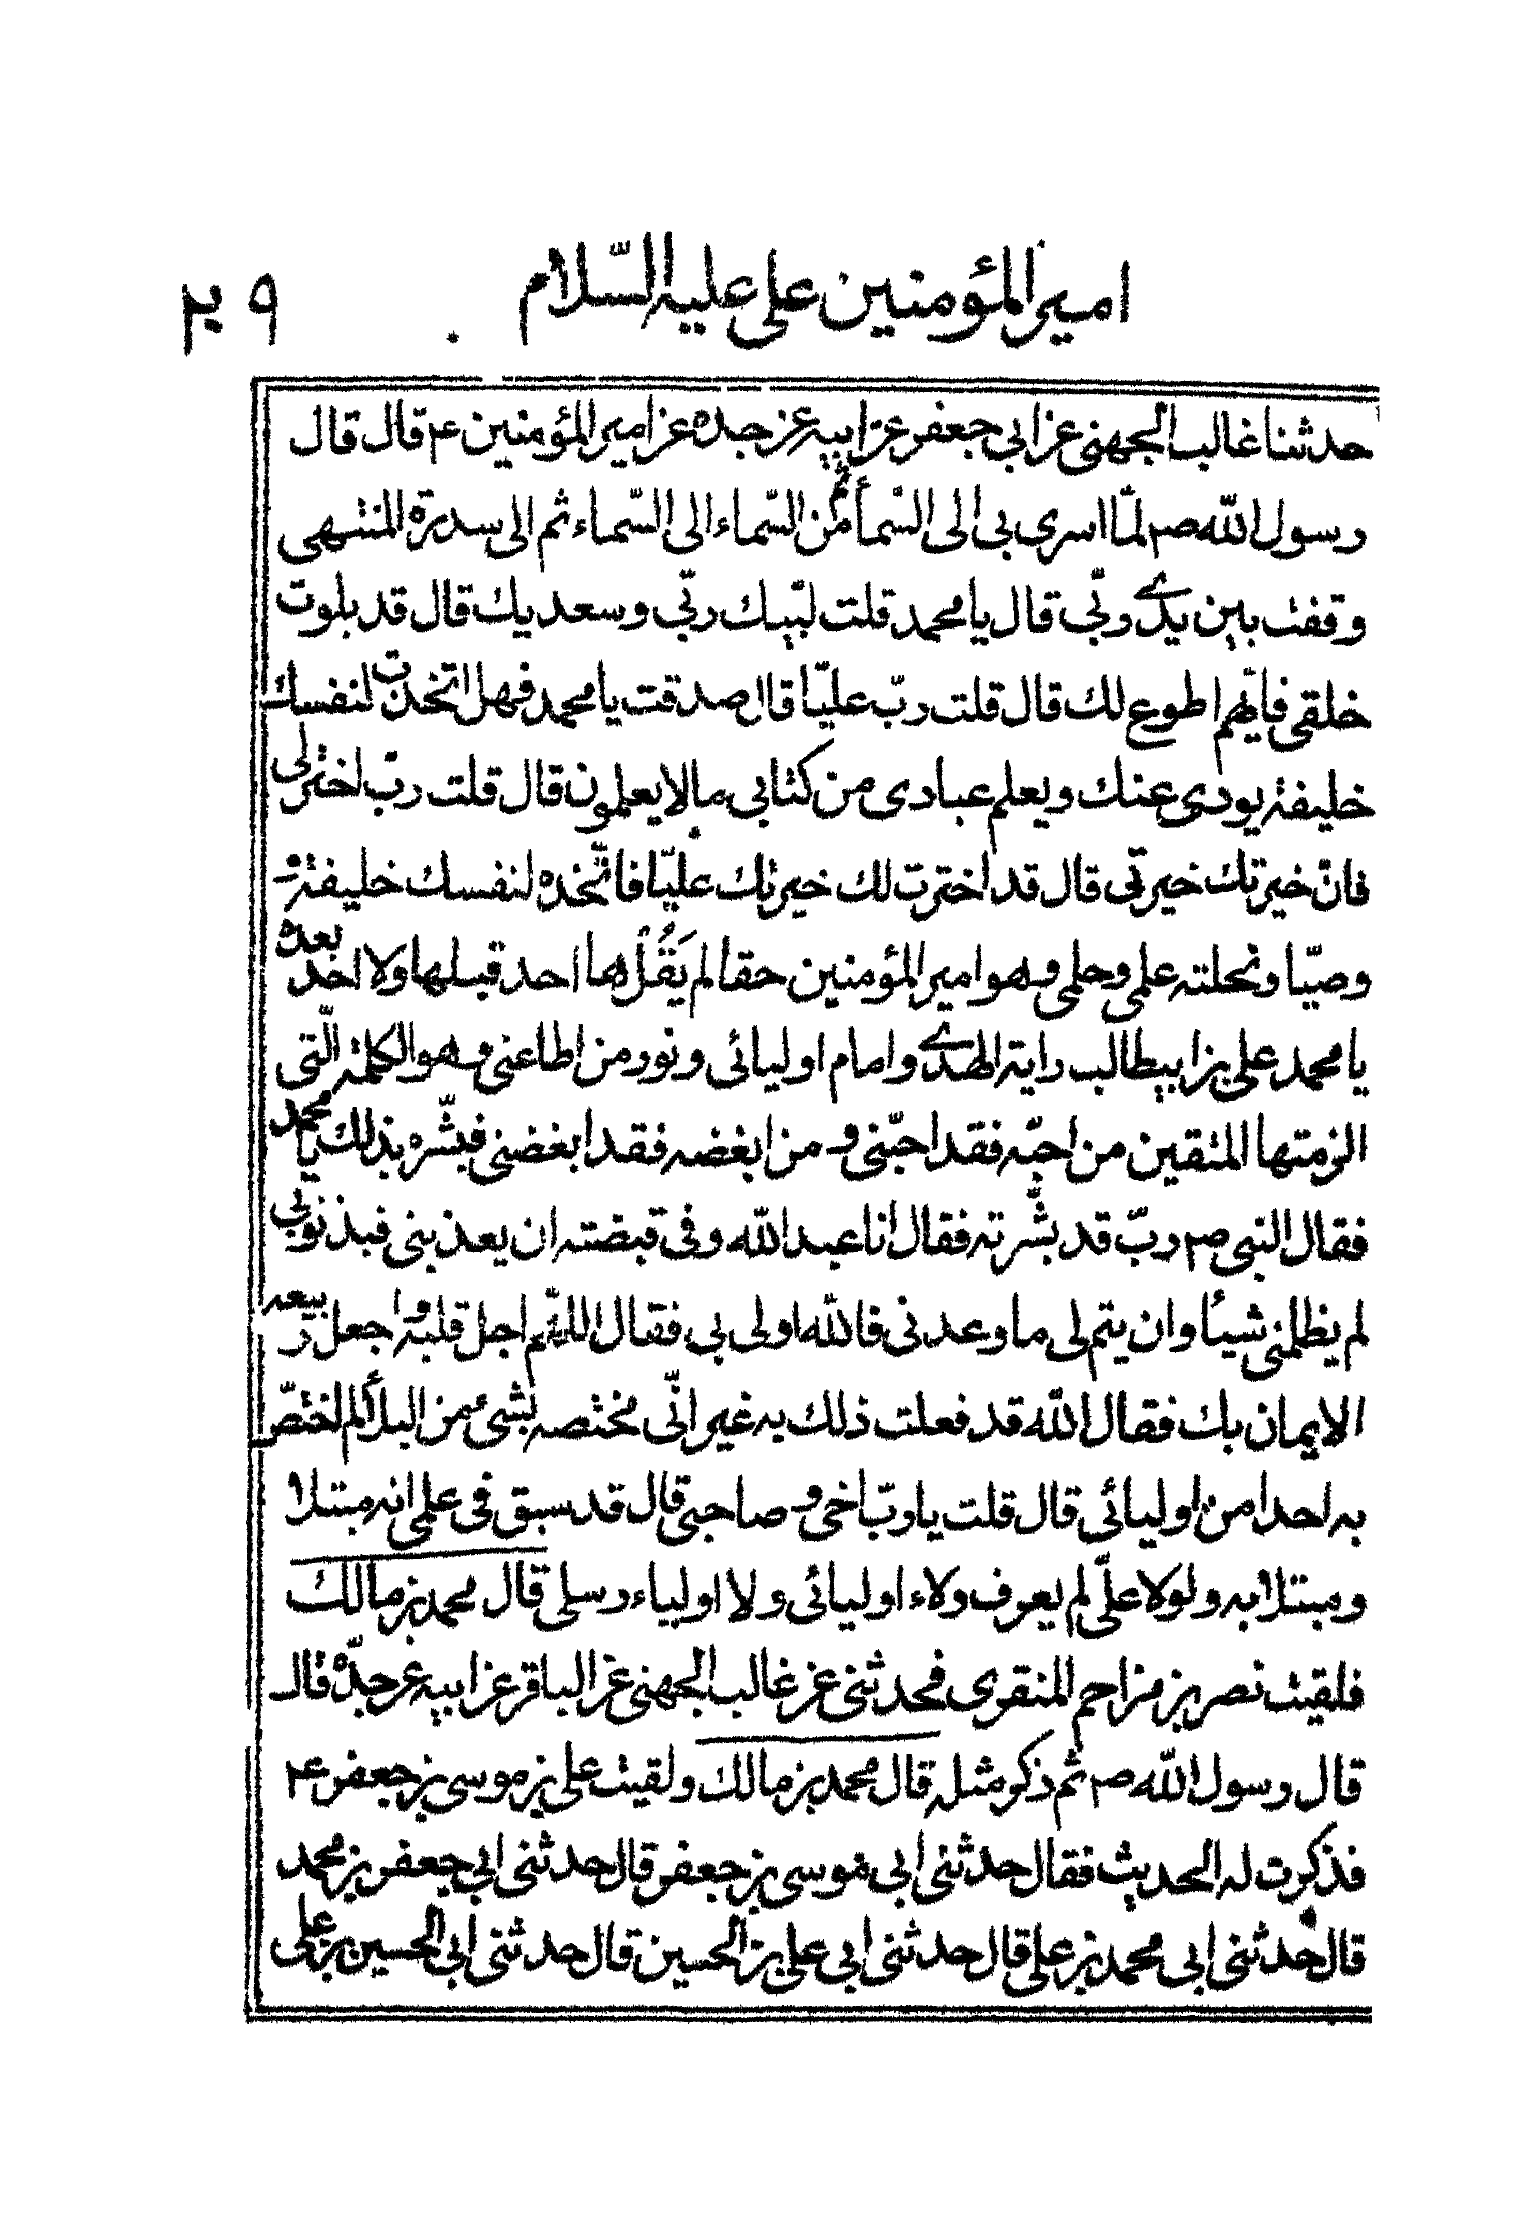 امير المؤمنين على عليه السّلام ٢٩
حدثنا غالب الجهنى عن ابي جعفر عن ابيه عن جده عن امير المؤمنين ع قال قال
رسول الله ص لمّا اسرى بى الى السّمأ ثمّ من السّماء الى السّماء ثم الى سدرة المنتهى
وقفت بين يدے ربّى قال يا محمد قلت لبّيك ربّي وسعديك قال قد بلوت
خلقى فأيّهم اطوع لك قال قلت ربّ عليّا قال صدقت يا محمد فهل اتخذت لنفسك
خليفة يودى عنك ويعلم عبادى من كتابي مالا يعلمون قال قلت ربّ اختر لى
فانّ خيرتك خيرتى قال قد اخترت لك خيرتك عليّا فاتّخذه لنفسك خليفة
وصيّا ونحلته علمى وحلمى وهو امير المؤمنين حقا لم يَقُلها احد قبلها ولا احد بعده
يا محمد على بن ابيطالب راية الهدے وامام اوليائى ونور من اطاعنى وهو الكلمة الّتى
الزمتها المتقين من احبّه فقد احبّنى و من ابغضه فقد ابغضنى فبشّره بذلك يا محمد
فقال النبى ص ربّ قد بشّرته فقال انا عبد الله وفى قبضته ان يعذبنى فبذنوبى
لم يظلمنى شيئا وان يتم لى ما وعدنى فالله اولى بى فقال اللهّم اجل قلبه واجعل ربيعه
الايمان بك فقال الله قد فعلت ذلك به غير انّى مختصه بشىء من البلأ لم اختصّ
به احدا من اوليائى قال قلت يا ربّ اخى و صاحبى قال قد سبق فى علمى انه مبتلا
ومبتلا به ولولا علىّ لم يعرف ولاء اوليائى ولا اولياء رسلى قال محمد بن مالك
فلقيت نصر بن مزاحم المنقرى فحدثنى عن غالب الجهنى عن الباقر عن ابيه عن جدّه قال
قال رسول الله ص ثم ذكر مثله قال محمد بن مالك ولقيت على بن موسى بن جعفر ع
فذكرت له الحديث فقال حدثنى ابى موسى بن جعفر قال حدثنى ابي جعفر بن محمد
قال حدثنى ابى محمد بن على قال حدثنى ابي على بن الحسين قال حدثنى ابى الحسين بن على